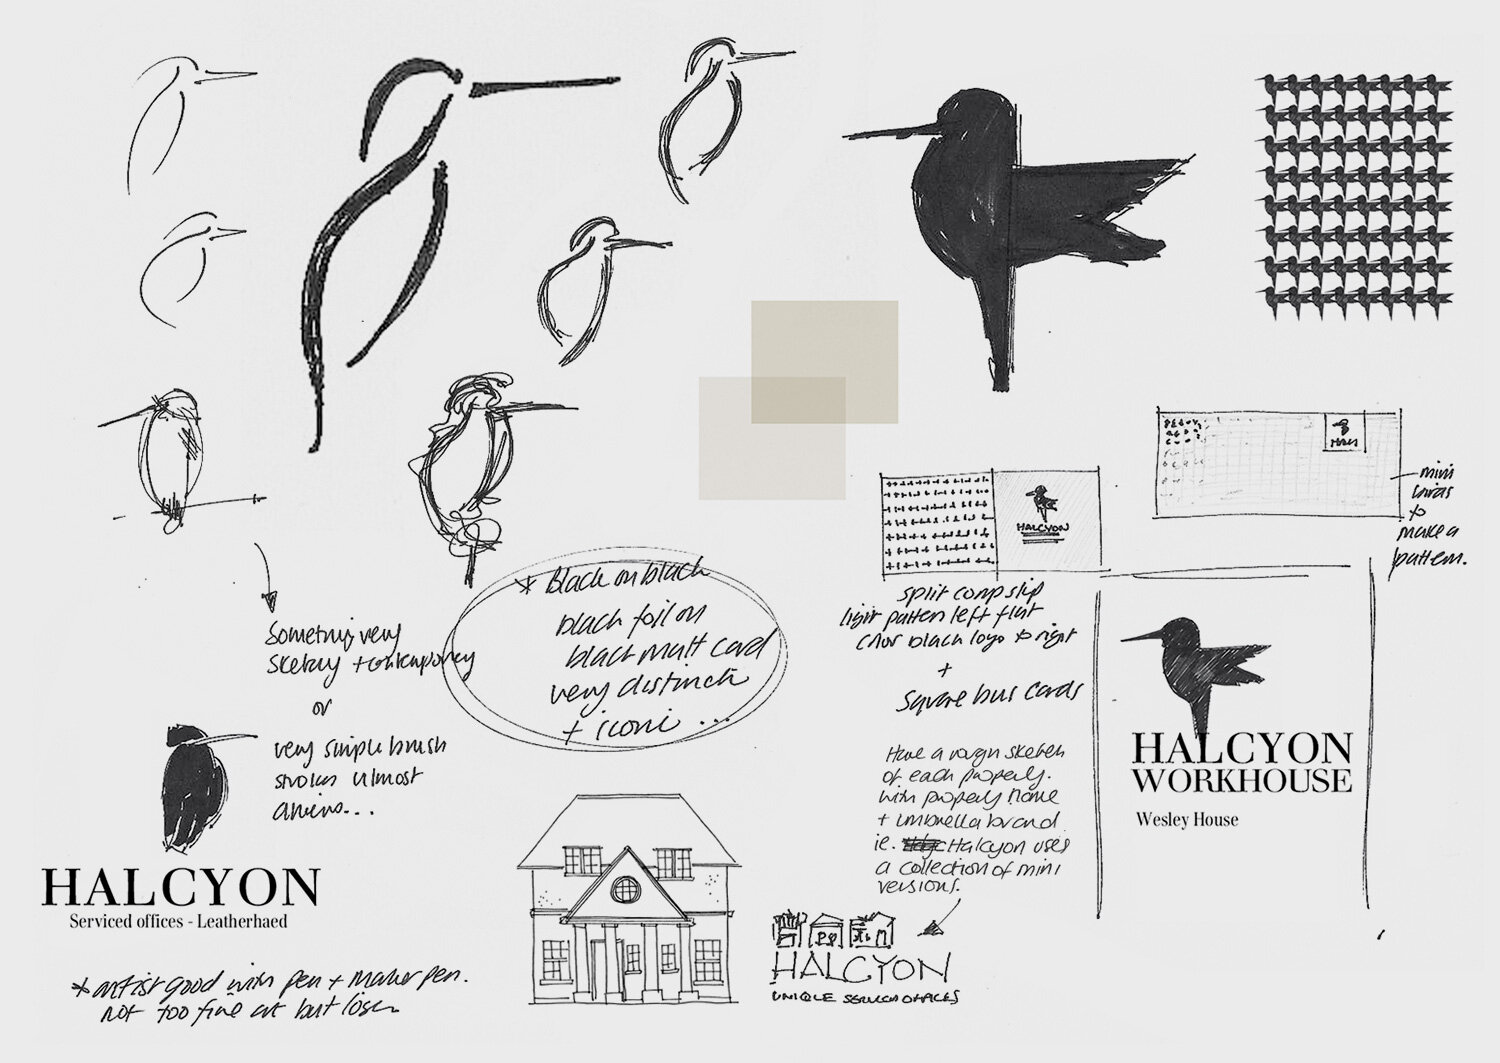 Something very
sketchy + contemporary
or
very simple brush
strokes almost
HALCYON
Serviced offices - Leatherhaed
* artist good with pen + marker pen.
not too fine art but loser
* Black on black
black foil on
black matt card
very distinctive
+ iconic ...
HALCYON
split comp slip
light pattern left flat
color black logo to right
+
square bus cards
mini
birds
to
make a
pattern.
Have a rough sketch
of each property.
with property name
+ umbrella brand
ie. Halcyon uses
a collection of mini
versions.
HALCYON
UNIQUE SERVICED OFFICES
HALCYON
WORKHOUSE
Wesley House